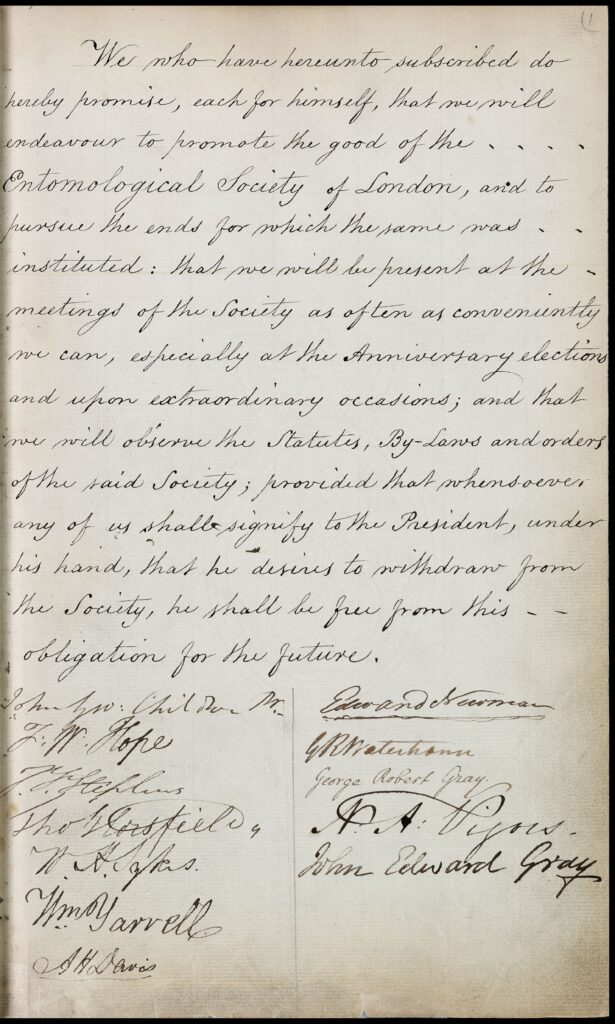 We who have hereunto subscribed do
hereby promise, each for himself, that we will
endeavour to promote the good of the - - - -
Entomological Society of London, and to
pursue the ends for which the same was - -
instituted: that we will be present at the -
meetings of the Society as often as conveniently
we can, especially at the Anniversary elections
and upon extraordinary occasions; and that
we will observe the Statutes, By-Laws and orders
of the said Society; provided that whensoever
any of us shall signify to the President, under
his hand, that he desires to withdraw from
the Society, he shall be free from this - -
obligation for the future.
John Geo: Children Pr.
F. W. Hope
J. F. Stephens
Tho Horsfield
W. H. Sykes.
Wm Yarrell
A H Davis
Edward Newman
G R Waterhouse
George Robert Gray.
N. A. Vigors.
John Edward Gray